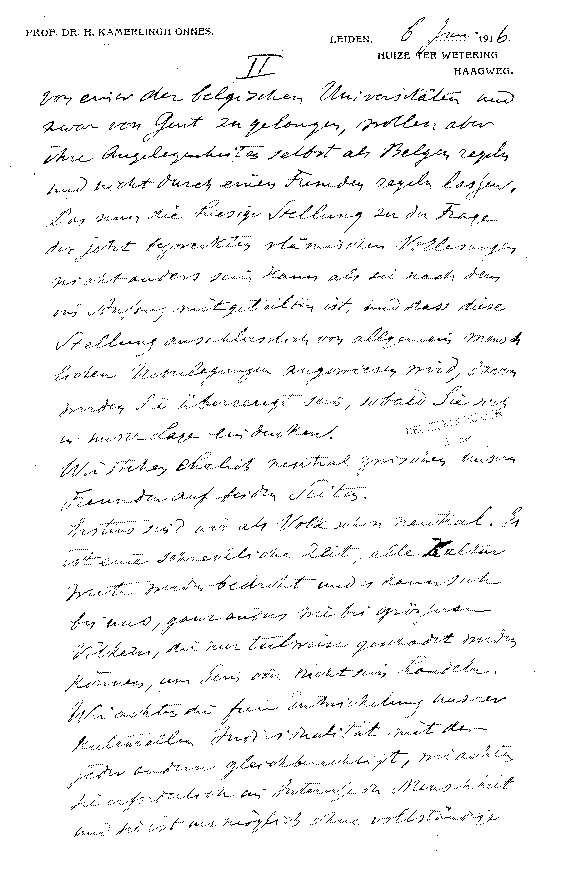 PROF. DR. H. KAMERLINGH ONNES.
LEIDEN, 6 Juni 1916.
HUIZE TER WETERING
HAAGWEG.
II
von einer der belgischen Universitäten und
zwar von Gent zu gelangen, wollen aber
ihre Angelegenheiten selbst als Belgen regeln
und nicht durch einen Fremden regeln lassen.
Das nun die hiesige Stellung zu der Frage
der jetzt bezweckten vlämischen Vorlesungen
nicht anders sein kann als sie nach dem
im Anfang mitgeteilten ist, und dass diese
Stellung ausschliesslich von allgemein mensch
lichen Überlegungen angewiesen wird, davon
werden Sie überzeugt sein, sobald Sie sich
in unsere Lage eindenken.
Wir stehen ehrlich neutral zwischen unsern
Freunden auf beiden Seiten.
Erstens sind wir als Volk schon neutral. Es
ist eine schreckliche Zeit, alle Kultur
werte werden bedroht und es kann sich
bei uns, ganz anders wie bei grösseren
Völkern, die nur teilweise geschadet werden
können, um Sein oder nicht sein handeln.
Wir achten die freie Entwickelung unserer
kulturellen Individualität mit der
jeder andern gleichberechtigt, wir achten
sie erforderlich im Interesse der Menschheit
und sie ist unmöglich ohne vollständige